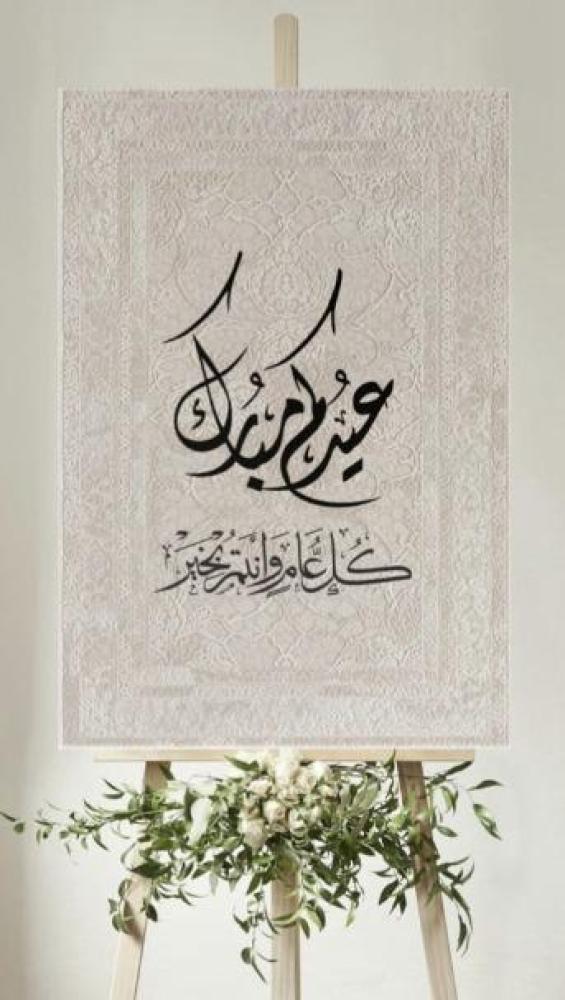 عيدكم مبارك
كُلُّ عَامٍ وَأَنتُمْ بِخَيْرٍ